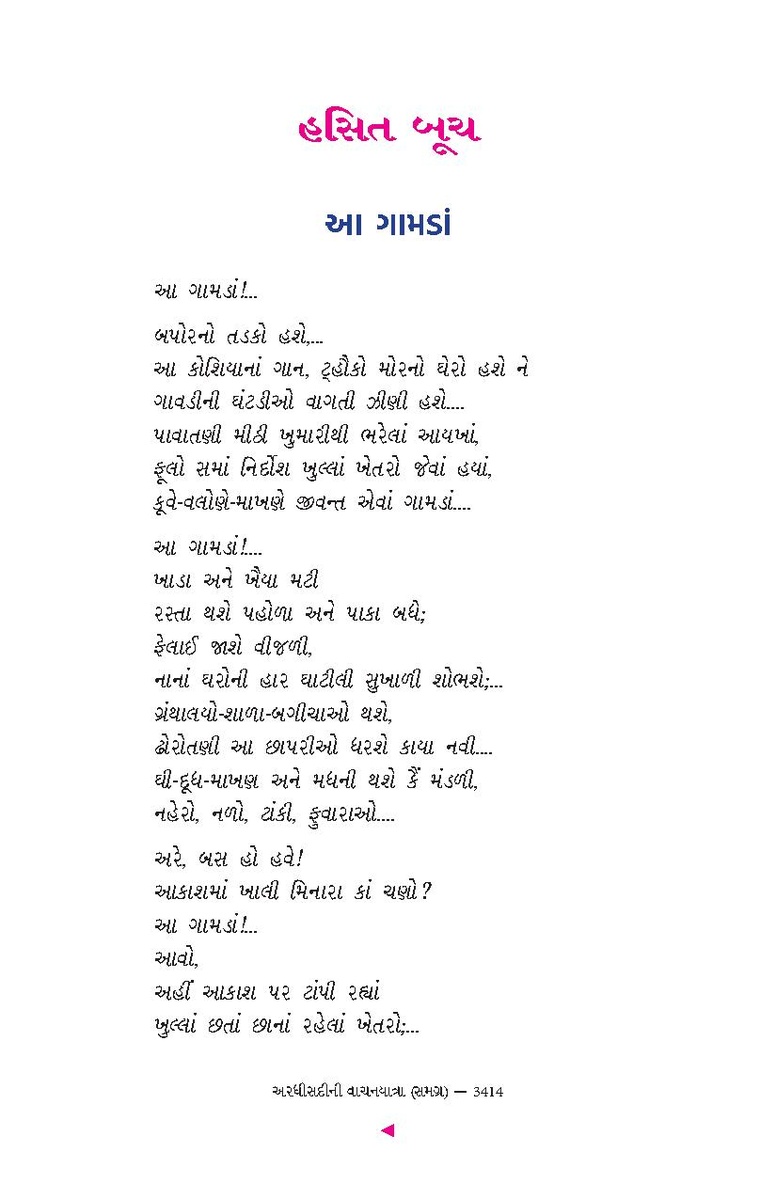 હસિત બૂચ
આ ગામડાં
આ ગામડાં!...
બપોરનો તડકો હશે,...
આ કોશિયાનાં ગાન, ટ્હૌકો મોરનો ઘેરો હશે ને
ગાવડીની ઘંટડીઓ વાગતી ઝીણી હશે....
પાવાતણી મીઠી ખુમારીથી ભરેલાં આયખાં,
ફૂલો સમાં નિર્દોશ ખુલ્લાં ખેતરો જેવાં હયાં,
કૂવે-વલોણે-માખણે જીવન્ત એવાં ગામડાં....
આ ગામડાં!....
ખાડા અને ખૈયા મટી
રસ્તા થશે પહોળા અને પાકા બધે;
ફેલાઈ જાશે વીજળી,
નાનાં ઘરોની હાર ઘાટીલી સુખાળી શોભશે;...
ગ્રંથાલયો-શાળા-બગીચાઓ થશે,
ઢોરોતણી આ છાપરીઓ ધરશે કાયા નવી....
ઘી-દૂધ-માખણ અને મધની થશે કૈં મંડળી,
નહેરો, નળો, ટાંકી, ફુવારાઓ....
અરે, બસ હો હવે!
આકાશમાં ખાલી મિનારા કાં ચણો?
આ ગામડાં!...
આવો,
અહીં આકાશ પર ટાંપી રહ્યાં
ખુલ્લાં છતાં છાનાં રહેલાં ખેતરો;...
અરધીસદીની વાચનયાત્રા (સમગ્ર) — 3414